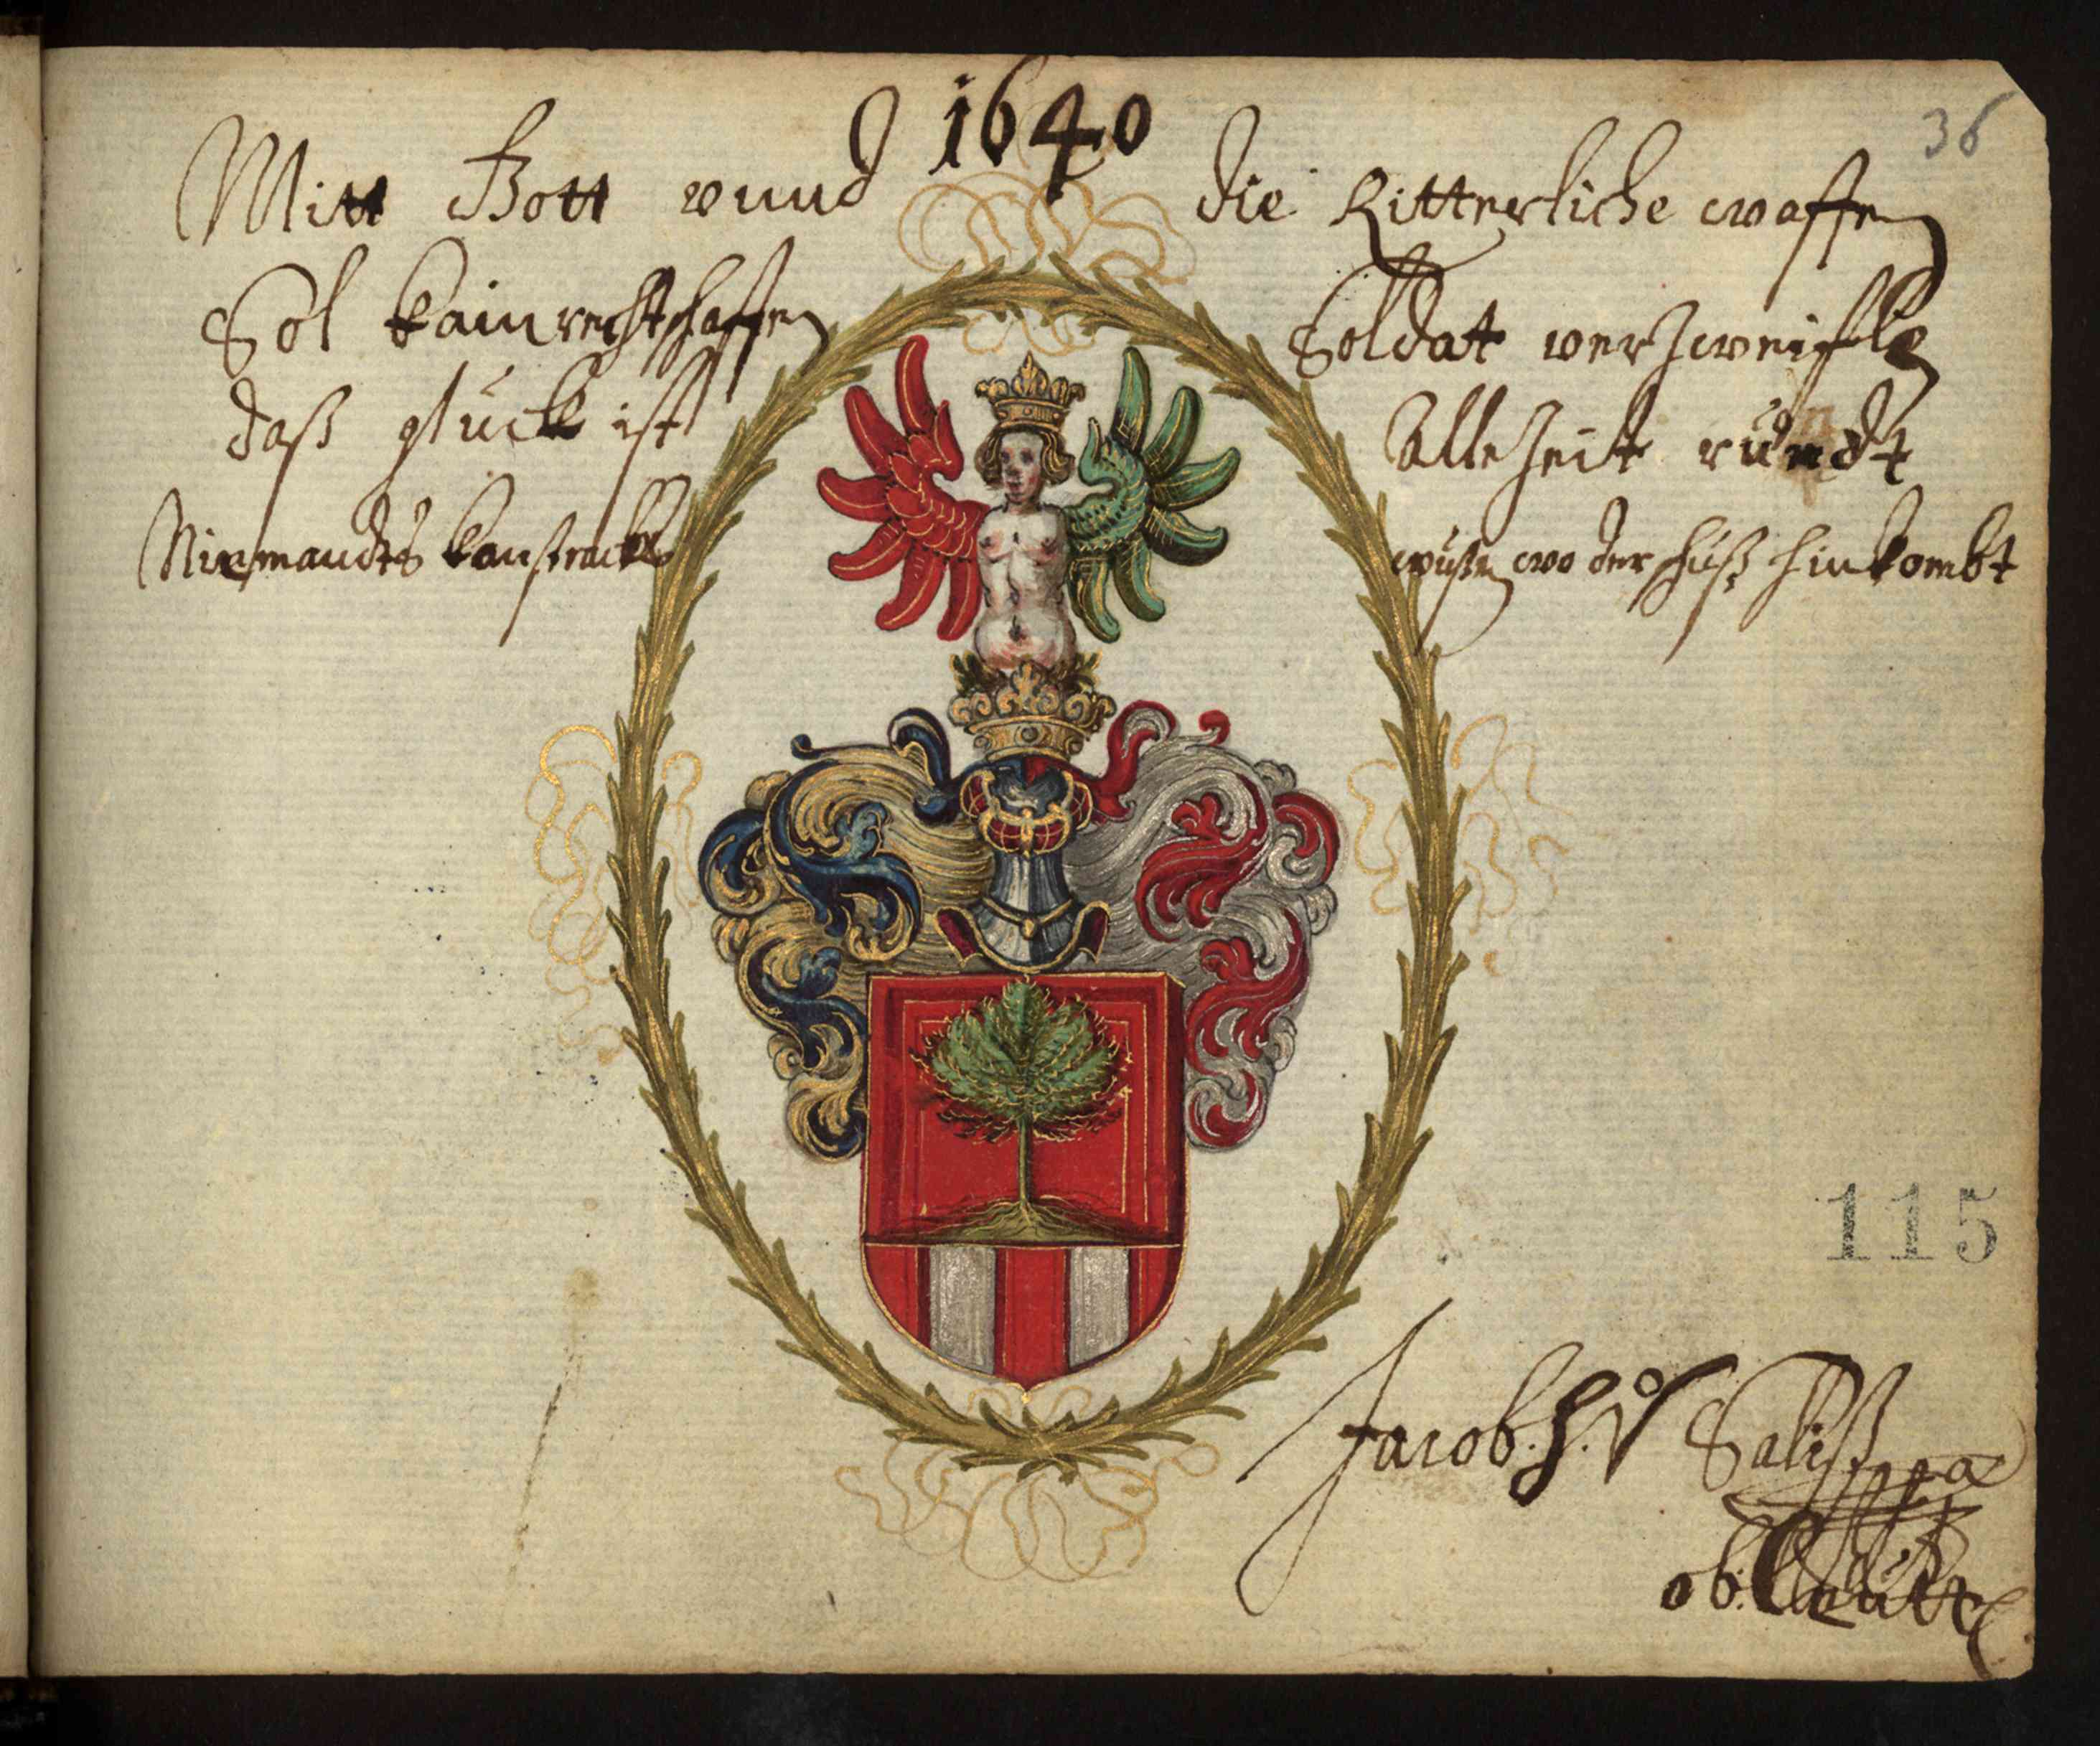 1640
36
Mitt Gott vnnd die Ritterliche waffen
Sol kain rechtschaffen Soldat verzweiflen
daß glück ist Alle Zeit rundt
Niemandts kan wüßen wo der hinkombt
115
Jacob. H. V Saliß
ob: